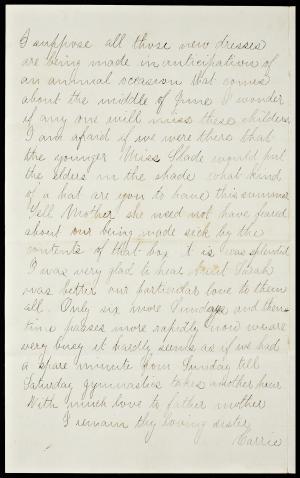 I suppose all those new dresses
are being made in anticipation of
an annual occasion that comes
about the middle of June I wonder
if any one will miss these children
I am afraid if we were there that
the younger Miss Slade would put
the elders in the shade what kind
of a hat are you to have this summer
Tell Mother she need not have feared
about our being made sick by the
contents of that box it is was splendid
I was very glad to hear Aunt Sarah
was better our particular love to them
all. Only six more Sundays and then
time passes more rapidly now we are
very busy it hardly seems as if we had
a spare minute from Sunday till
Saturday gymnastics takes another hour
With much love to father mother
I remain thy loving sister
Carrie